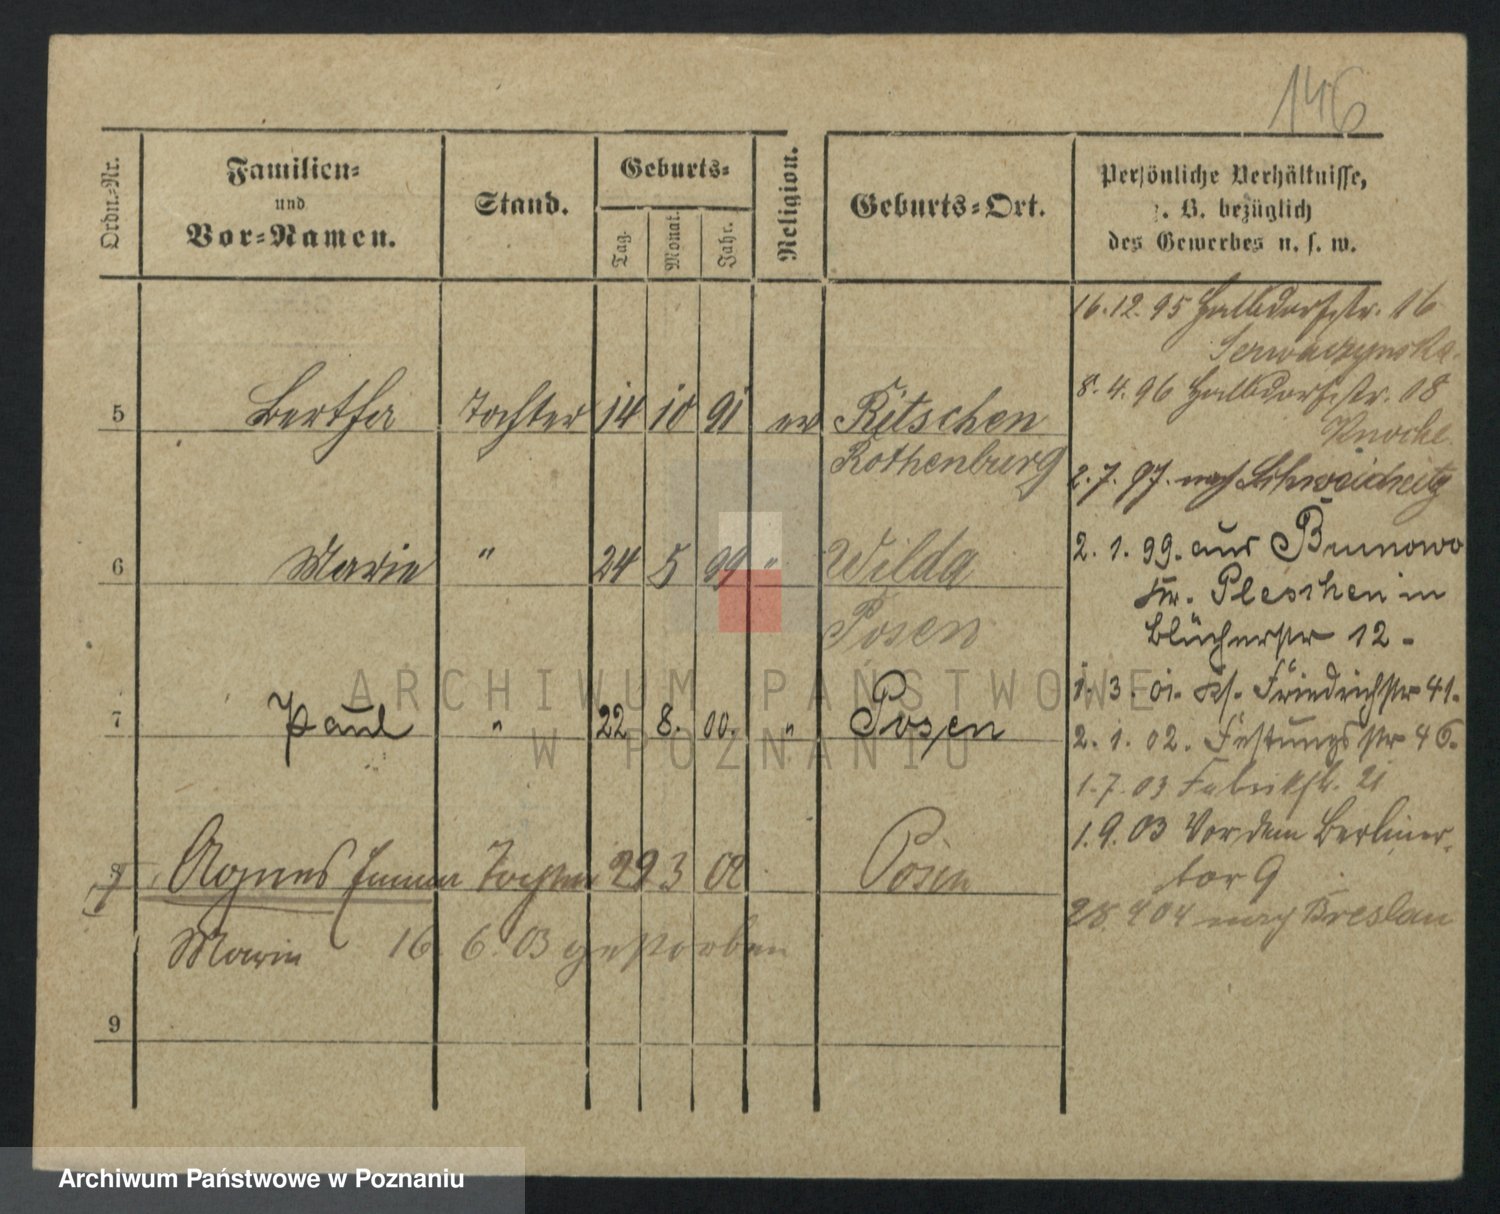 146
Ordn.-Nr.
Familien-
und
Vor-Namen.
Stand.
Geburts-
Tag.
Monat.
Jahr.
Religion.
Geburts-Ort.
Persönliche Verhältnisse,
z. B. bezüglich
des Gewerbes u. s. w.
5 Bertha Tochter 14 10 91 ev Ritschen
Rothenburg
6 Marie " 24 5 99 " Wilda
Posen
7 Paul " 22 8. 00. " Posen
8 Agnes Emma Tochter 29 3 02 Posen
Marie 16. 6. 03 gestorben
9
16.12.95 Halbdorfstr. 16
Serwaczynska.
8.4.96 Halbdorfstr. 08
Knochel.
2.7.97. nach Schweidnitz
2.1.99. aus Brunowo
Kr. Pleschen in
Blücherstr 12-
1.3.01. Friedrichstr 41.
2.1.02. Festungsstr 46.
1.7.03 Fabrikstr. 21
1.9.03 Vor dem Berliner-
tor 9
28.4.04 nach Breslau
ARCHIWUM PAŃSTWOWE
W POZNANIU
Archiwum Państwowe w Poznaniu